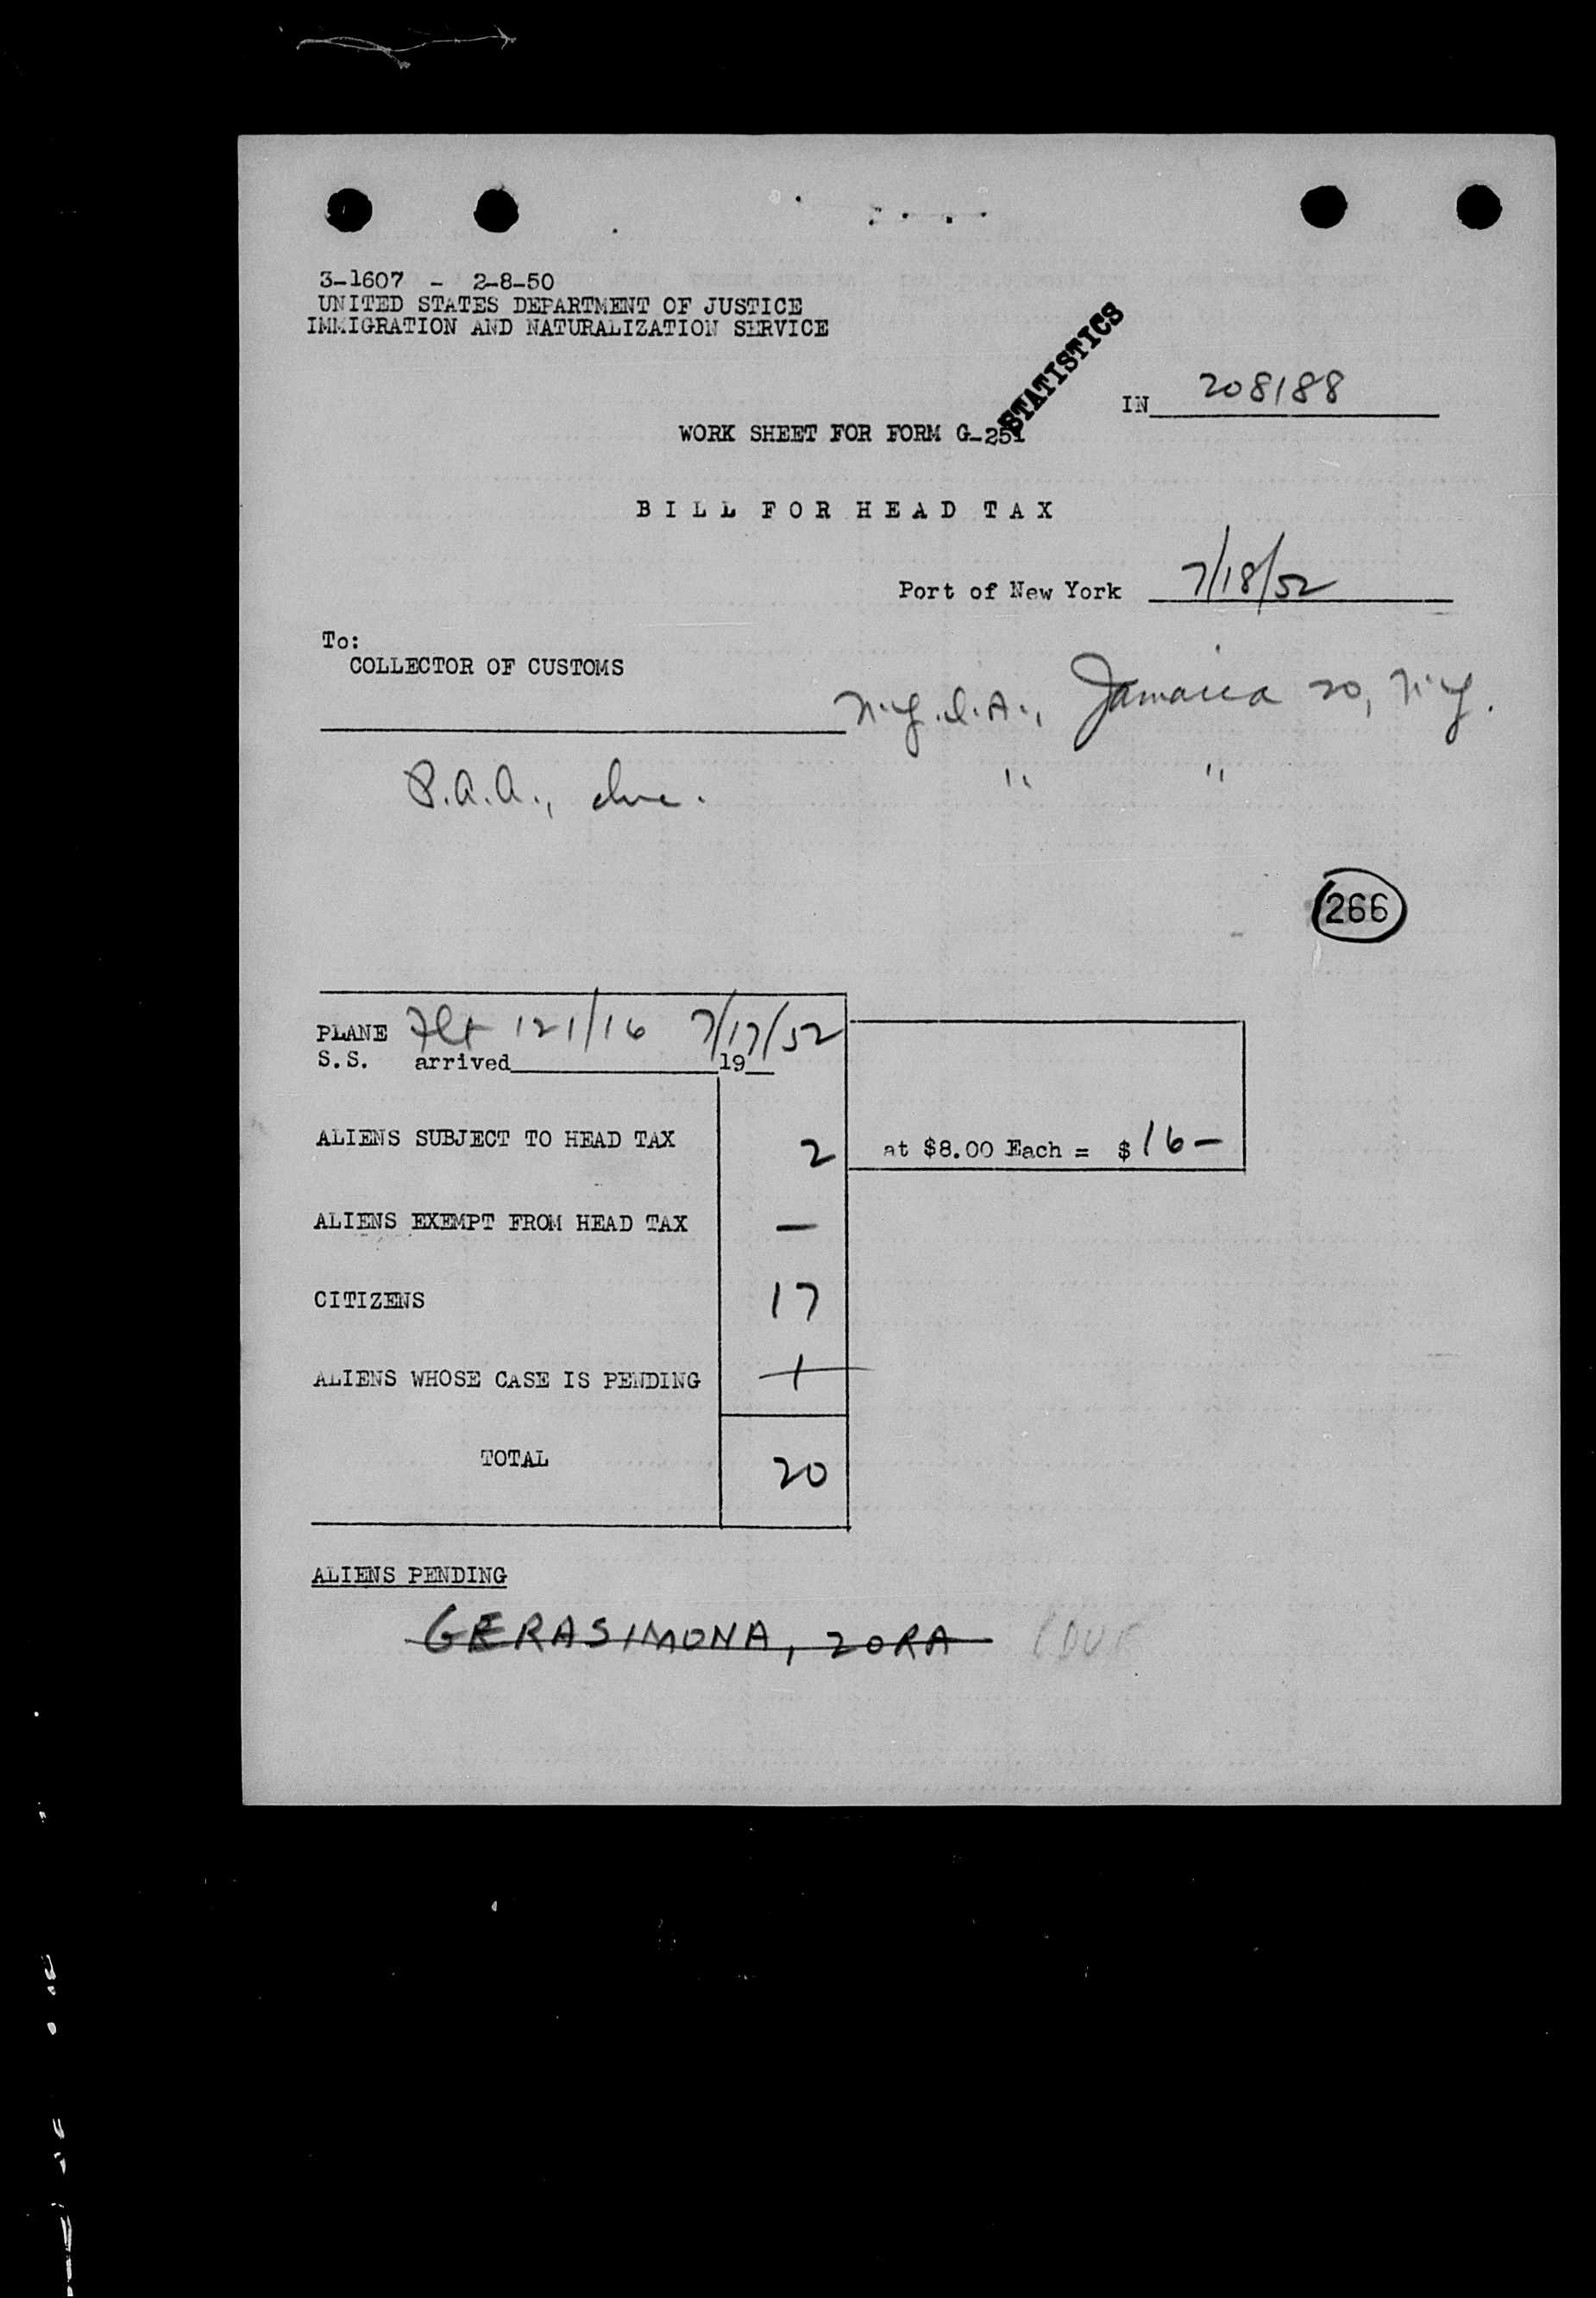 3-1607 - 2-8-50
UNITED STATES DEPARTMENT OF JUSTICE
IMMIGRATION AND NATURALIZATION SERVICE
STATISTICS
IN 208188
WORK SHEET FOR FORM G-251
BILL FOR HEAD TAX
Port of New York 7/18/52
To:
COLLECTOR OF CUSTOMS
N.Y.I.A., Jamaica 20, N.Y.
P.A.A., Inc. " "
266
PLANE Flt 121/16 7/17/52
S.S. arrived 19
ALIENS SUBJECT TO HEAD TAX 2 at $8.00 Each = $ 16 —
ALIENS EXEMPT FROM HEAD TAX —
CITIZENS 17
ALIENS WHOSE CASE IS PENDING 1
TOTAL 20
ALIENS PENDING
GERASIMONA, ZORA